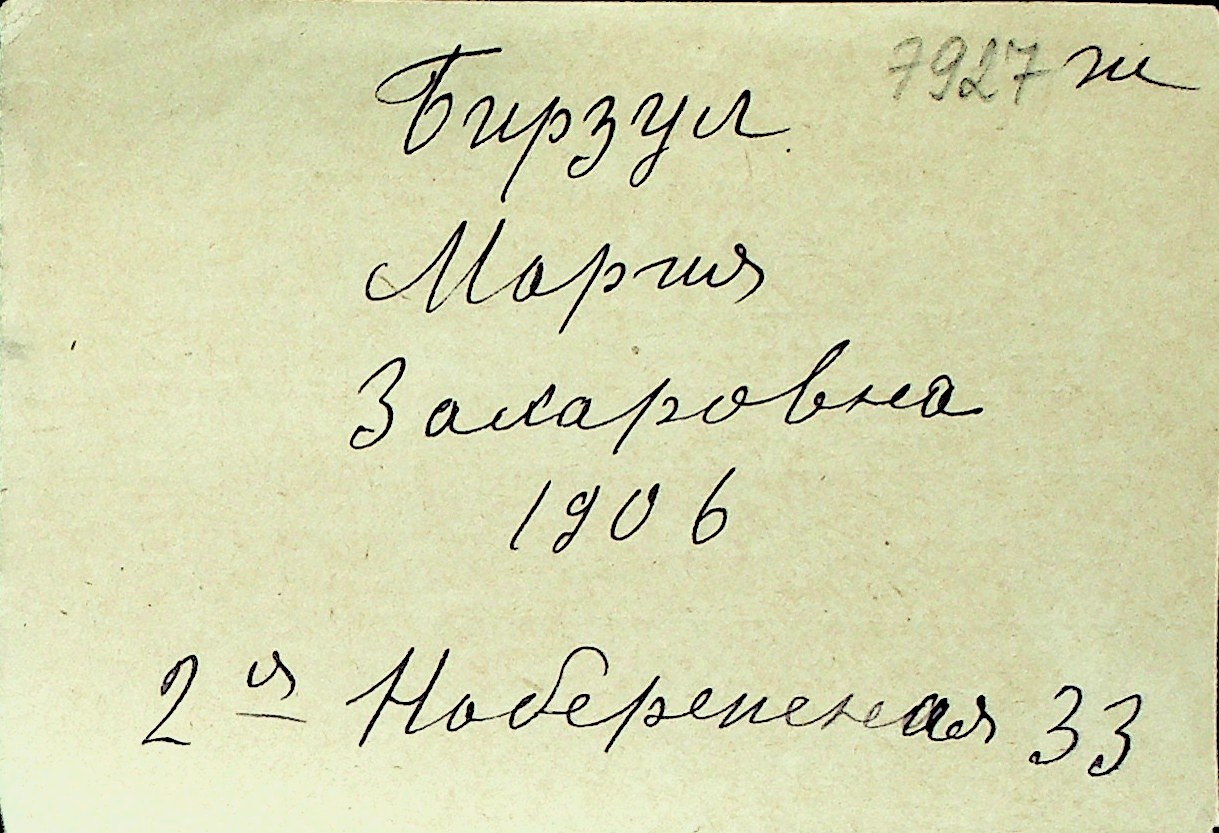 7927 ж
Бирзул
Мария
Захаровна
1906
2 ая Набережная 33